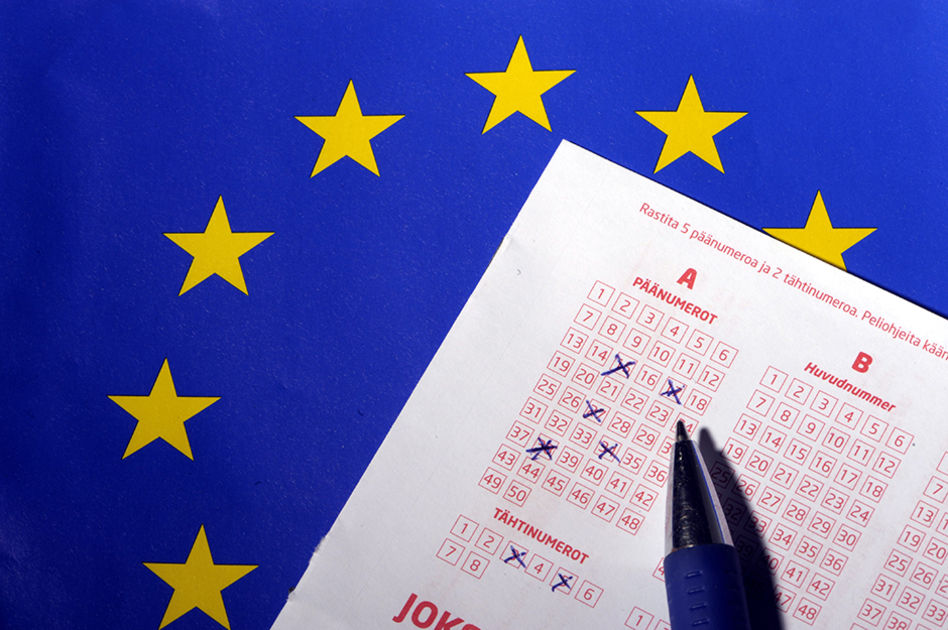 Rastita 5 päänumeroa ja 2 tähtinumeroa. Peliohjeita
A
PÄÄNUMEROT
1 2 3 4 5 6
7 8 9 10 11 12
13 14 16 18
19 20 21 22 23
25 26 28 29
31 32 33 35 36
37 39 40 41 42
43 44 45 46 47 48
49 50
TÄHTINUMEROT
1 2 4 6
7 8
B
Huvudnummer
1 2 3 4 5 6
7 8 9 10 11 12
13 14 15 16 17 18
19 20 21 22 23 24
25 26 27 28 29 30
33 34 35 36
40 41 42
47 48
7
13
19 20
25 26
31 32
37 38